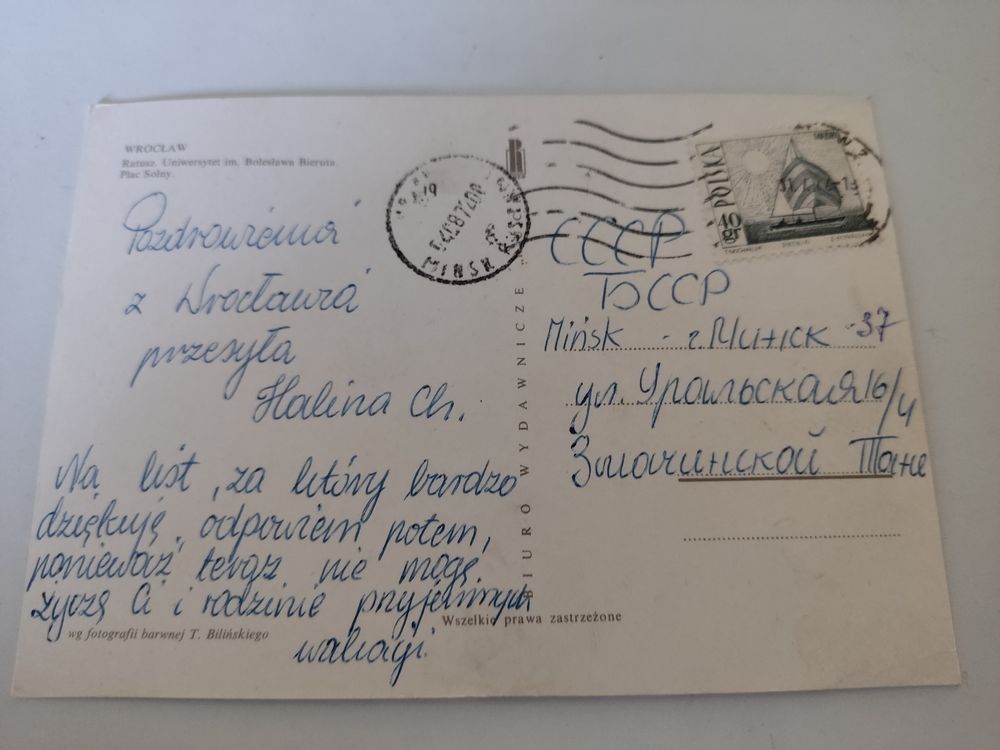 WROCŁAW
Ratusz. Uniwersytet im. Bolesława Bieruta.
Plac Solny.
Pozdrowienia
z Wrocławia
przesyła
Halina Ch.
Na list, za który bardzo
dziękuję, odpowiem potem,
ponieważ teraz nie mogę.
życzę Ci i rodzinie przyjemnych
wakacji.
wg fotografii barwnej T. Bilińskiego
BIURO WYDAWNICZE "
Wszelkie prawa zastrzeżone
MINSK
POLSKA
40 gr
СССР
БССР
Mińsk - г. Минск -37
ул. Уральская 16/4
Змачинской Тане